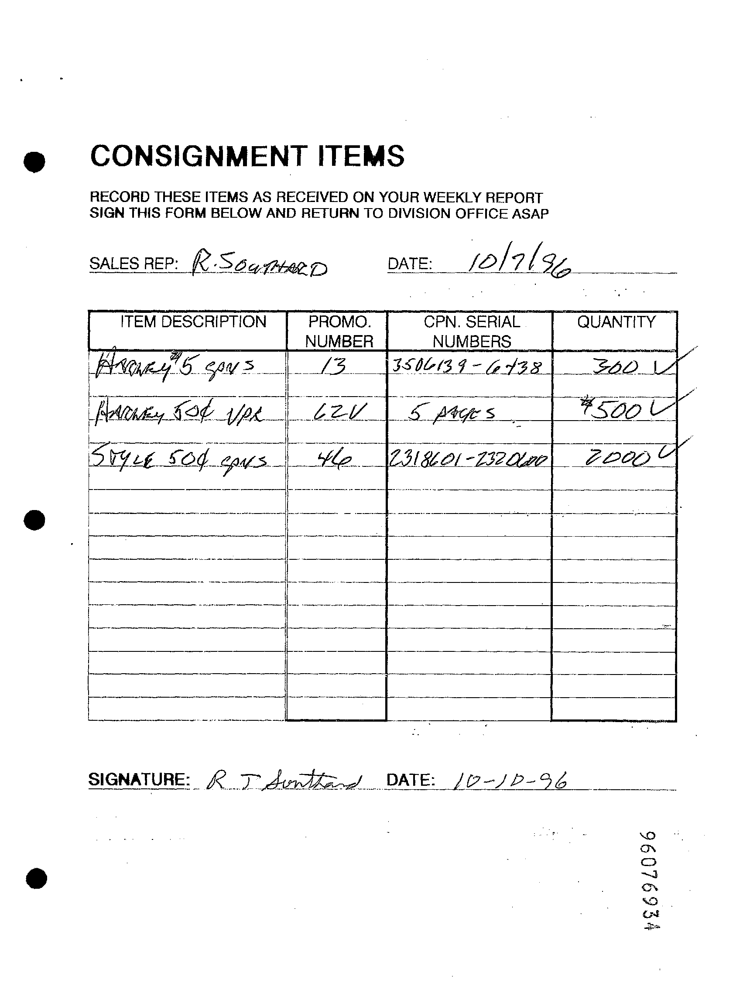 CONSIGNMENT ITEMS
RECORD THESE ITEMS AS RECEIVED ON YOUR WEEKLY REPORT
SIGN THIS FORM BELOW AND RETURN TO DIVISION OFFICE ASAP
SALES REP: R. SOUTHARD DATE: 10/7/96
ITEM DESCRIPTION PROMO. NUMBER CPN. SERIAL NUMBERS QUANTITY
HARLEY $5 CPNS 13 3506139-6438 300
HARLEY 50¢ VPR 62V 5 PAGES $500
STYLE 50¢ CPNS 46 2318601-2320600 2000
SIGNATURE: R T Southard DATE: 10-10-96
96076934